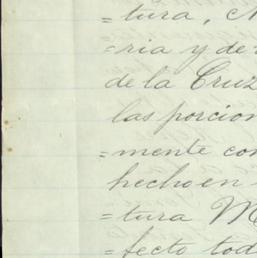 =tura, N
=ria y de
de la Cruz
las porcion
=mente con
hecho en
=tura M
=fecto tod